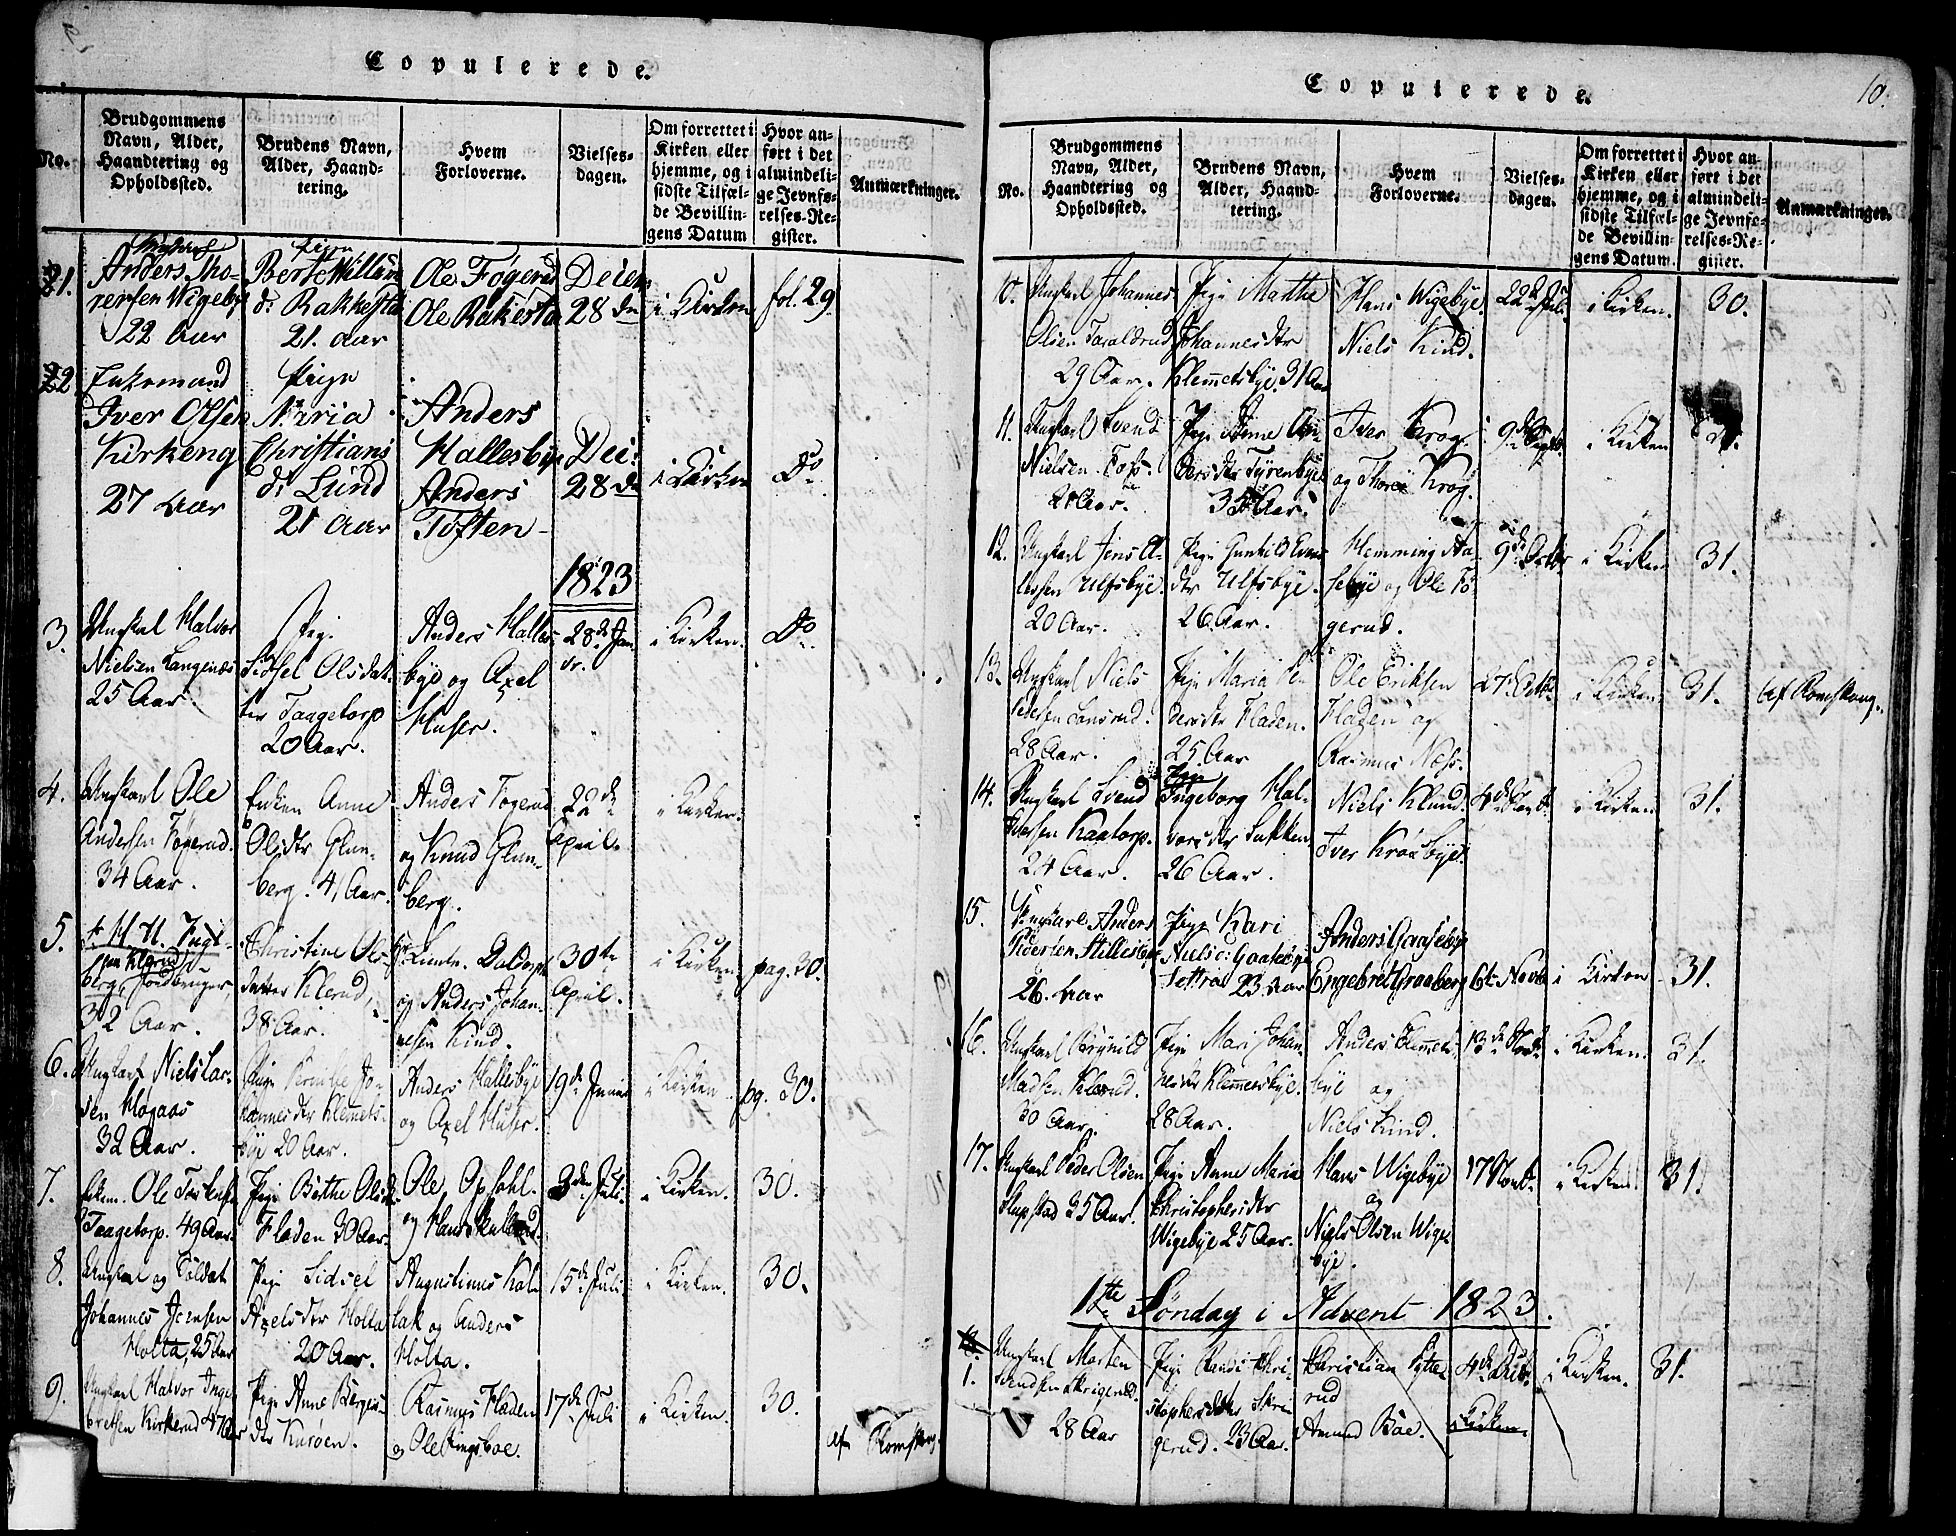 Copulerede.
No.
Brudgommens Navn, Alder, Haandtering og Opholdssted.
Brudens Navn, Alder, Haandtering.
Hvem Forloverne.
Vielsesdagen.
Om forrettet i Kirken eller hjemme, og i sidste Tilfælde Bevillingens Datum
Hvor anført i det almindelige Jevnførelses-Register.
Anmærkninger.
21.
Anders Tho-
resen Wigebye
22 Aar
Pigen
Berte Willums
d: Rakkesta
21. Aar
Ole Fögerud
Ole Rakesta
Decem
28 de
i Kirken
fol. 29
22
Enkemand
Iver Olsen
Kirkeng
27 Aar
Pige
Maria
Christians
d: Lund
21 Aar
Anders
Hallesbye
Anders
Toften
Dec:
28 de
i Kirken
Do
1823
3.
Ungkarl Halvor
Nielsen Langenæs
25 Aar
Pige
Sidsel Olsdat-
ter Taagetorp
20 Aar.
Anders Halles-
bye og Axel
Huser.
28de Jan
r.
i Kirken.
Do
4.
Ungkarl Ole
Andersen Fögerud.
34 Aar.
Enken Anne
Olsdtr Glen-
berg. 41 Aar.
Anders Fögerud
og Knud Glen-
berg.
22de
April.
i Kirken.
5.
berg, Jordbruger,
32 Aar.
Christine Ols-
datter Klerud,
38 Aar.
Lieutn. Daldorph
og Anders Johan-
nesen Kind.
30te
April.
i Kirken
pag. 30.
6.
Ungkarl Niels Lar-
sen Högaas
32 Aar.
Pige Jo-
hannesdtr Klemets-
bye 20 Aar.
Anders Hallesbye
og Axel Huser.
19de Junii
i Kirken
pg. 30.
7.
Enkem. Ole Torstensen
Taagetorp. 49 Aar.
Pige Berthe Olsd.
Fladen 30 Aar.
Ole Opsahl.
og Hans
3den Juli.
i Kirken.
30.
8.
Ungkarl og Soldat
Johannes Jensen
Holta, 25 Aar
Pige Sidsel
Axelsdtr Holta
20 Aar.
Augustinus Kol-
lak og Anders
Holta.
15de Juli
i Kirken.
30.
9.
Ungkarl Halvor Inge-
bretsen Kirkerud 47 Aar
Pige Anne Börges-
dtr Kuröen.
Rasmus Fladen
og Ole Kingsboe.
17de Juli
i Kirken.
30.
af Romskog.
Copulerede.
10.
No.
Brudgommens Navn, Alder, Haandtering og Opholdssted.
Brudens Navn, Alder, Haandtering.
Hvem Forloverne.
Vielsesdagen.
Om forrettet i Kirken eller hjemme, og i sidste Tilfælde Bevillingens Datum.
Hvor anført i det almindelige Jevnførelses-Register.
Anmærkninger.
10.
Ungkarl Johannes
Olsen Taraldrud
29 Aar.
Pige Marthe
Johannesdtr
Klemetsbye. 31 Aar
Hans Wigebye.
Niels Kind.
22de Juli.
i Kirken.
30.
11.
Ungkarl Svend
Nielsen Foss.
21 Aar.
Pige Anne An-
dersdtr Tyrenbye
35 Aar.
Iver Krog.
og Thore Krog.
9de Septbr.
i Kirken
12.
Ungkarl Jens
Ulfsbye.
20 Aar.
Pige Gunhild Evens
dtr Ulfsbye.
26 Aar.
Hemming Aa-
sebye og Ole Fö-
gerud.
9de Octbr
i Kirken
31.
13.
Ungkarl Niels
Pedersen
28 Aar.
Pige Maria Pe-
dersdtr Fladen.
25 Aar
Ole Eriksen
Fladen og
Rasmus Næss.
27de Octbr.
i Kirken.
31.
Af Romskoug.
14.
Ungkarl Svend
Iversen Kaatorp.
24 Aar.
Pige
Ingeborg Hal-
vorsdtr Sukken
26 Aar.
Niels Klund.
Iver Kroxbye.
4de
i Kirken
31.
15.
Ungkarl Anders
Pedersen Stillesbye
26. Aar
Pige Kari
Niels d: Gaatebye
23. Aar
Anders Gaasebye
Engebret Graaberg
6te Novbr
i Kirken
31.
16.
Ungkarl Brynild
Madsen Klerud.
30 Aar.
Pige Mari Johan-
nesdtr Klemmetsbye.
28 Aar.
Anders Klemmets-
bye og
Niels Kind.
13de Novbr.
i Kirken.
31.
17.
Ungkarl Peder Olsen
Slupstad 35 Aar.
Pige Anne Maria
Christophersdtr
Wigebye 25 Aar.
Hans Wigebye
og
Niels Olsen Wige-
bye.
17 Novb.
i Kirken.
31.
1ste Söndag i Advent 1823.
1.
Ungkarl Morten
Svendsen Skrigerud.
28 Aar
Pige Randi Chri-
stophersdtr Skri-
gerud. 23 Aar.
Christian
rud
Amund Böe.
4de Decbr.
i Kirken.
31.